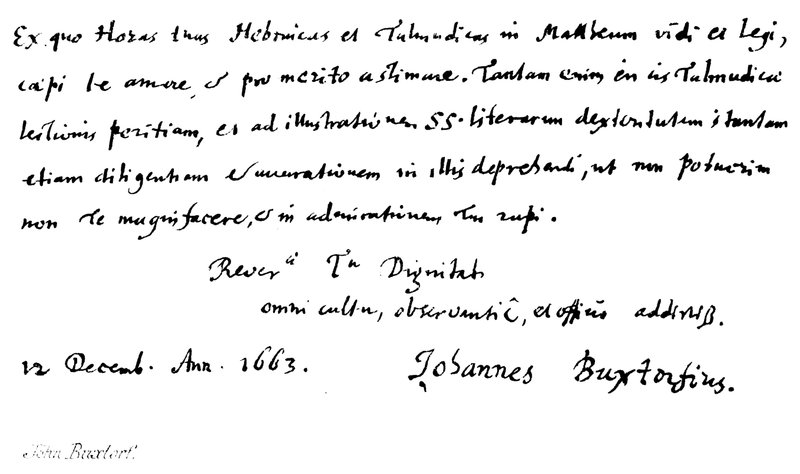 Ex quo Horas tuas Hebraicas et Talmudicas in Matthæum vidi et legi,
cæpi te amare, & pro merito æstimare. Tantam enim in iis Talmudicæ
lectionis peritiam, et ad illustrationem SS. literarum dexteritatem, tantam
etiam diligentiam & in illis deprehendi, ut non potuerim
non te magnifacere, & in admirationem tui rapi.
Rever. Tuæ Dignitati
omni cultu, observantiâ, et officiis addictiß.
12 Decemb. Ann. 1663. Johannes Buxtorfius.
John Buxtorf.